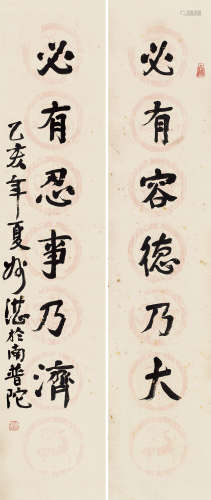 必有容德乃大
必有忍事乃濟
乙亥年夏妙湛於南普陀